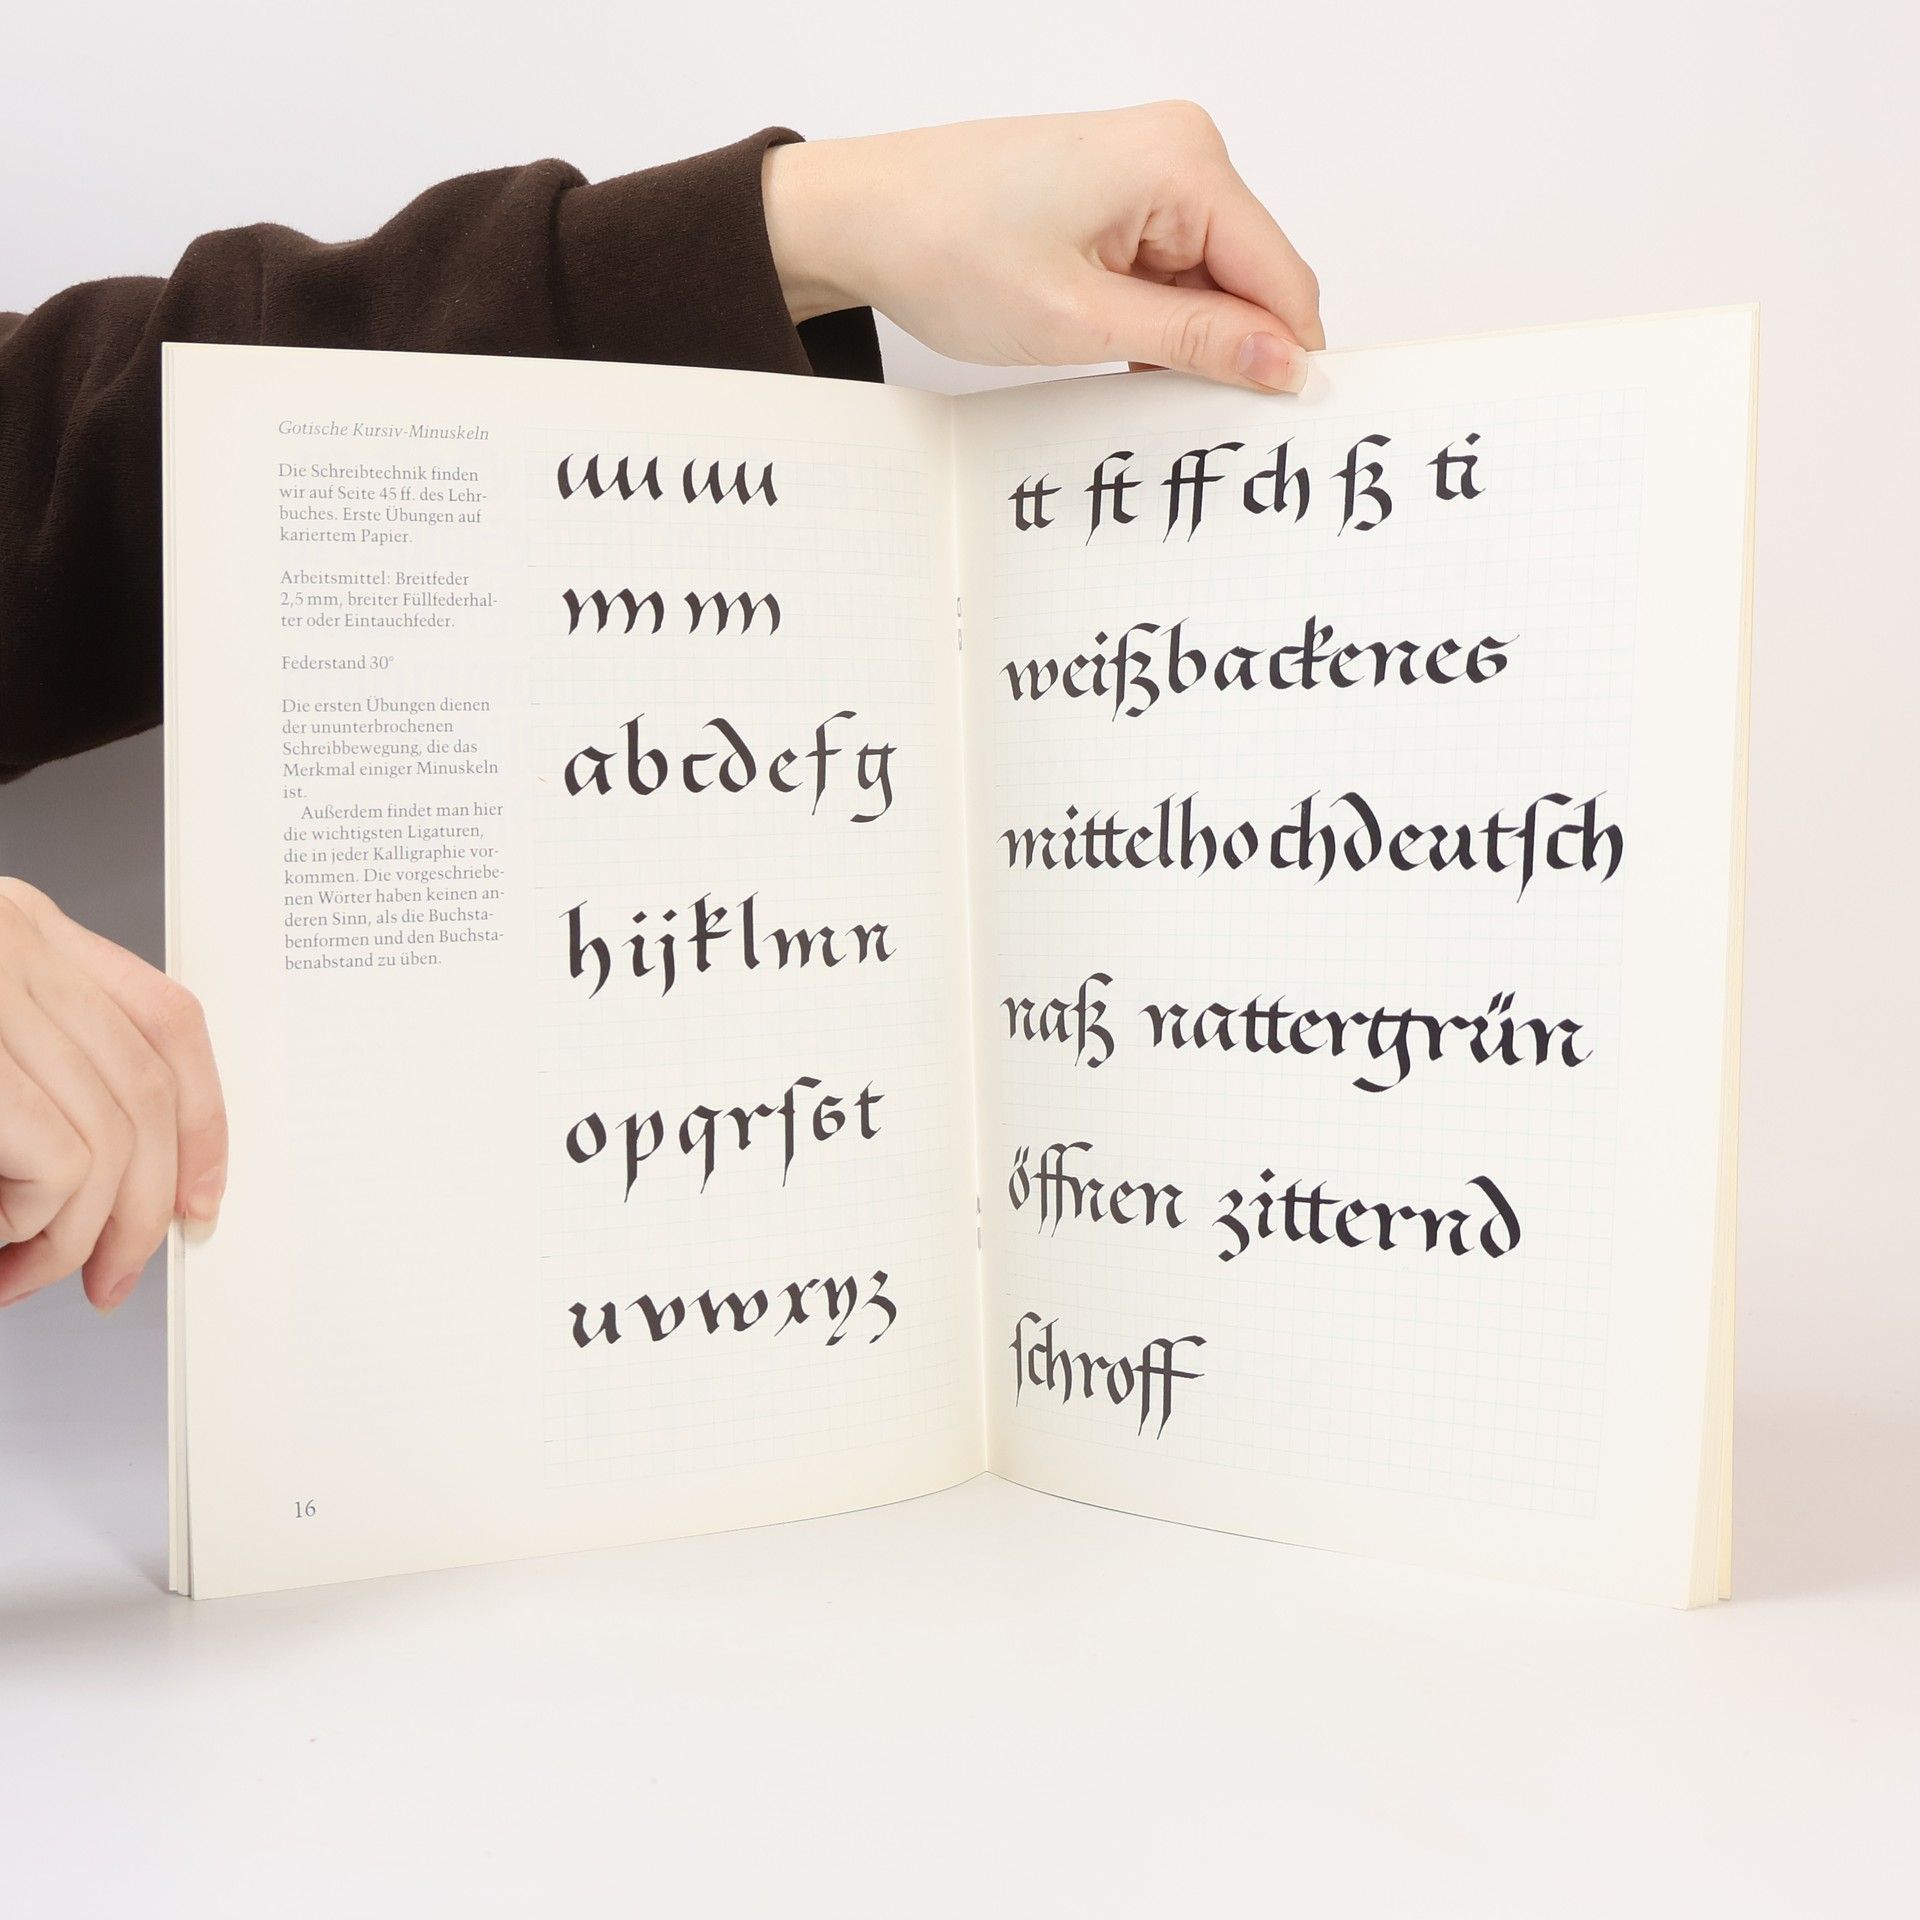 Gotische Kursiv-Minuskeln
Die Schreibtechnik finden
wir auf Seite 45 ff. des Lehr-
buches. Erste Übungen auf
kariertem Papier.
Arbeitsmittel: Breitfeder
2,5 mm, breiter Füllfederhal-
ter oder Eintauchfeder.
Federstand 30°
Die ersten Übungen dienen
der ununterbrochenen
Schreibbewegung, die das
Merkmal einiger Minuskeln
ist.
Außerdem findet man hier
die wichtigsten Ligaturen,
die in jeder Kalligraphie vor-
kommen. Die vorgeschriebe-
nen Wörter haben keinen an-
deren Sinn, als die Buchsta-
benformen und den Buchsta-
benabstand zu üben.
16
abcdefg
hijklmn
opqrſst
uvwxyz
tt ſt ff ch ß ti
weißbackenes
mittelhochdeutſch
naß nattergrün
öffnen zitternd
ſchroff